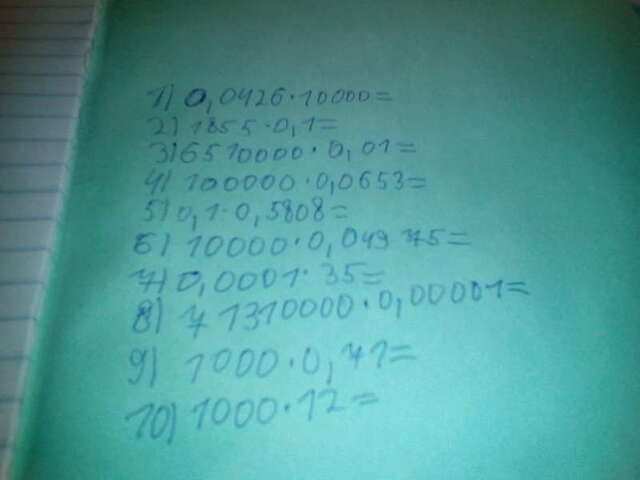 1) 0,0426·10000=
2) 1855·0,1=
3) 6510000·0,01=
4) 100000·0,0653=
5) 0,1·0,5808=
6) 10000·0,04975=
7) 0,0001·35=
8) 71310000·0,00001=
9) 1000·0,71=
10) 1000·12=